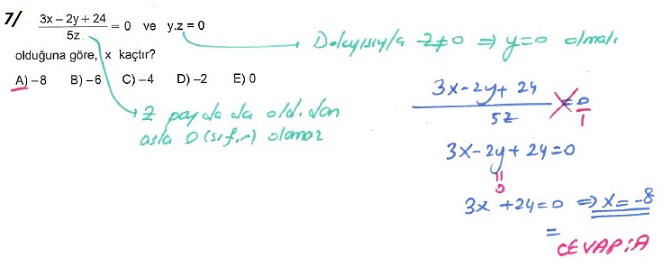 7/ (3x – 2y + 24)/5z = 0 ve y.z = 0
olduğuna göre, x kaçtır?
A) –8 B) –6 C) –4 D) –2 E) 0
Dolayısıyla z≠0 ⇒ y=0 olmalı
z payda da old.dan
asla 0 (sıfır) olamaz
(3x-2y+24)/5z = 0/1
3x-2y+24=0
0
3x+24=0 ⇒ x=-8
=
CEVAP:A